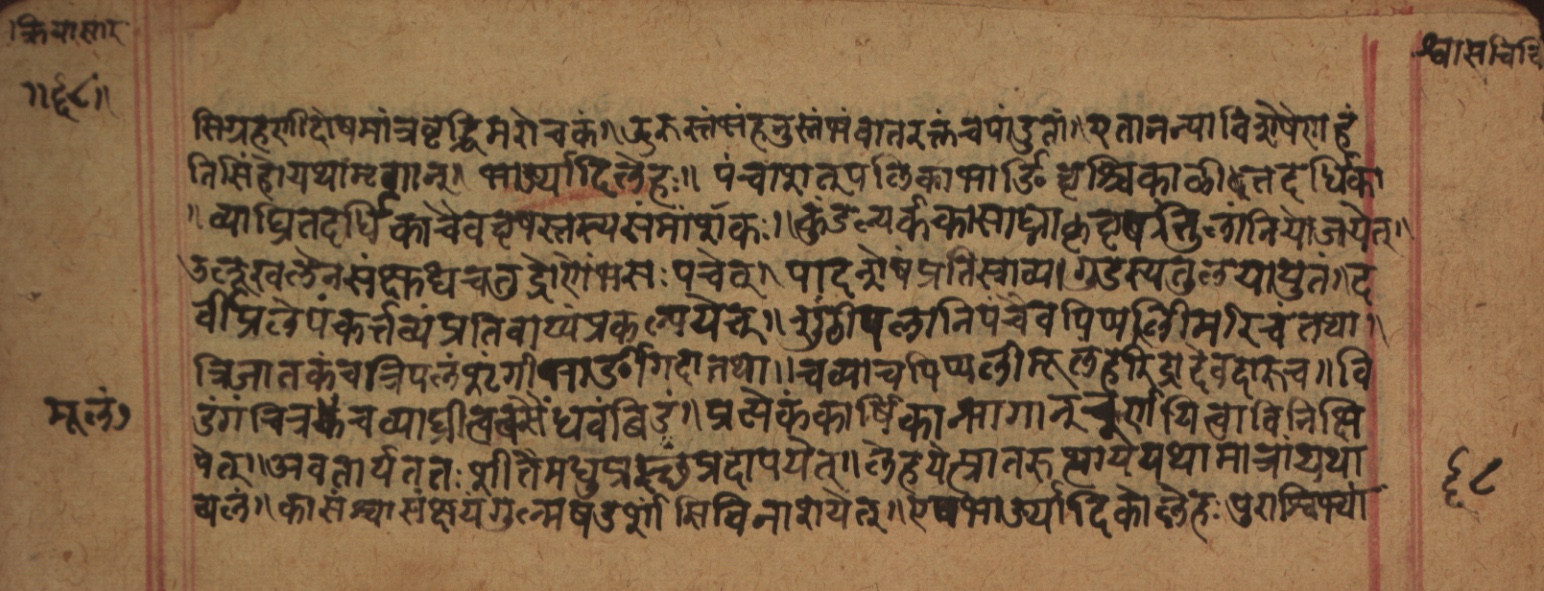 क्रियासार
श्वासचिचि
॥६८॥
सिग्रहणीदोषमांत्रवृद्धिमरोचकं॥ ऊरुस्तंभंहनुस्तंभंवातरक्तंचपांडुतां॥ एतानन्याविशेषेणहं
तिसिंहोयथामृगान्॥ भार्ज्यादिलेहः॥ पंचाशत्पलिकाभार्ङीवृश्चिकाळीतदर्धिका
॥व्याघ्रितदर्धिकाचैववृषस्तस्यसमांशकः॥ तुलांनियोजयेत्॥
उलूखलेनसंक्षुद्यचतुर्द्रोणेंभसःपचेत्॥ पादशेषंप्रतिस्राव्य। गुडस्यतुलयायुतं॥द
र्वीप्रलेपंकर्त्तव्यंप्रतिवाप्यंप्रकल्पयेत्॥ शुंठीपलानिपंचैवपिप्पलीमरिचंतथा॥
त्रिजातकंचत्रिपलंशृंगीभार्ङीगदातथा॥ चव्याचपिप्पलीमूलंहरिद्रादेवदारुच॥ वि
डंगंचित्रकंचव्याघ्रीत्वक्सैंधवंबिडं॥ प्रत्येकंकार्षिकाभागान्चूर्णयित्वाविनिक्षि
पेत्॥ अवतार्यततःशीतेमधुप्रस्थंप्रदापयेत्॥ लेहयेत्प्रातरुत्थाययथामात्रांयथा
बलं॥ कासंश्वासंक्षयंगुल्मषडर्शांसिविनाशयेत्॥ एषभार्ज्यादिकोलेहःपुराश्विभ्यां
मूलं७
६८